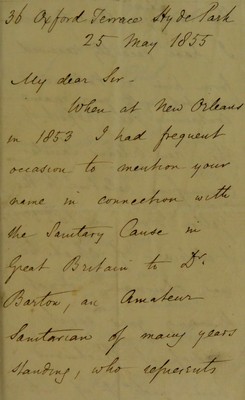 36 Oxford Terrace Hyde Park
25 May 1855
My dear Sir -
When at New Orleans
in 1853 I had frequent
occasion to mention your
name in connection with
the Sanitary Cause in
Great Britain to Dr.
Barton, an Amateur
Sanitarian of many years
standing, who represents